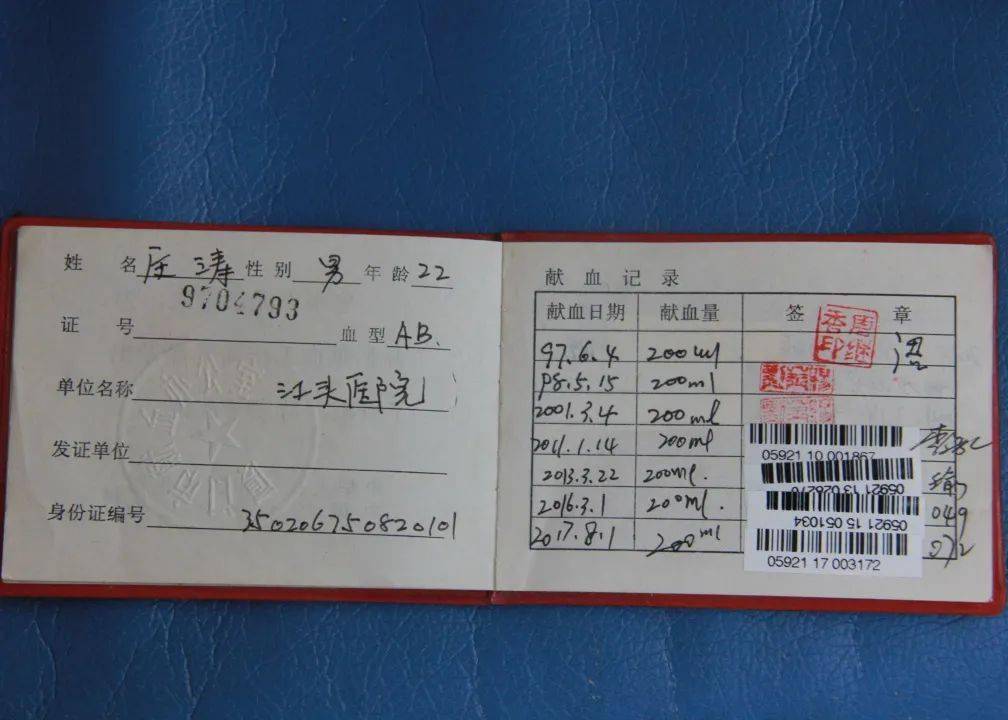 姓 名 庄涛 性别 男 年龄 22
9704793
证 号 血型 AB.
单位名称 江头医院
发证单位
身份证编号 350206750820101
献血记录
献血日期 献血量 签 章
97.6.4 200ml
98.5.15 200ml
2001.3.4 200ml
2011.1.14 200ml
05921 10 001867
2013.3.22 200ml.
05921 13 026270
2016.3.1 200ml.
05921 15 051034
049
2017.8.1 200ml
05921 17 003172
072